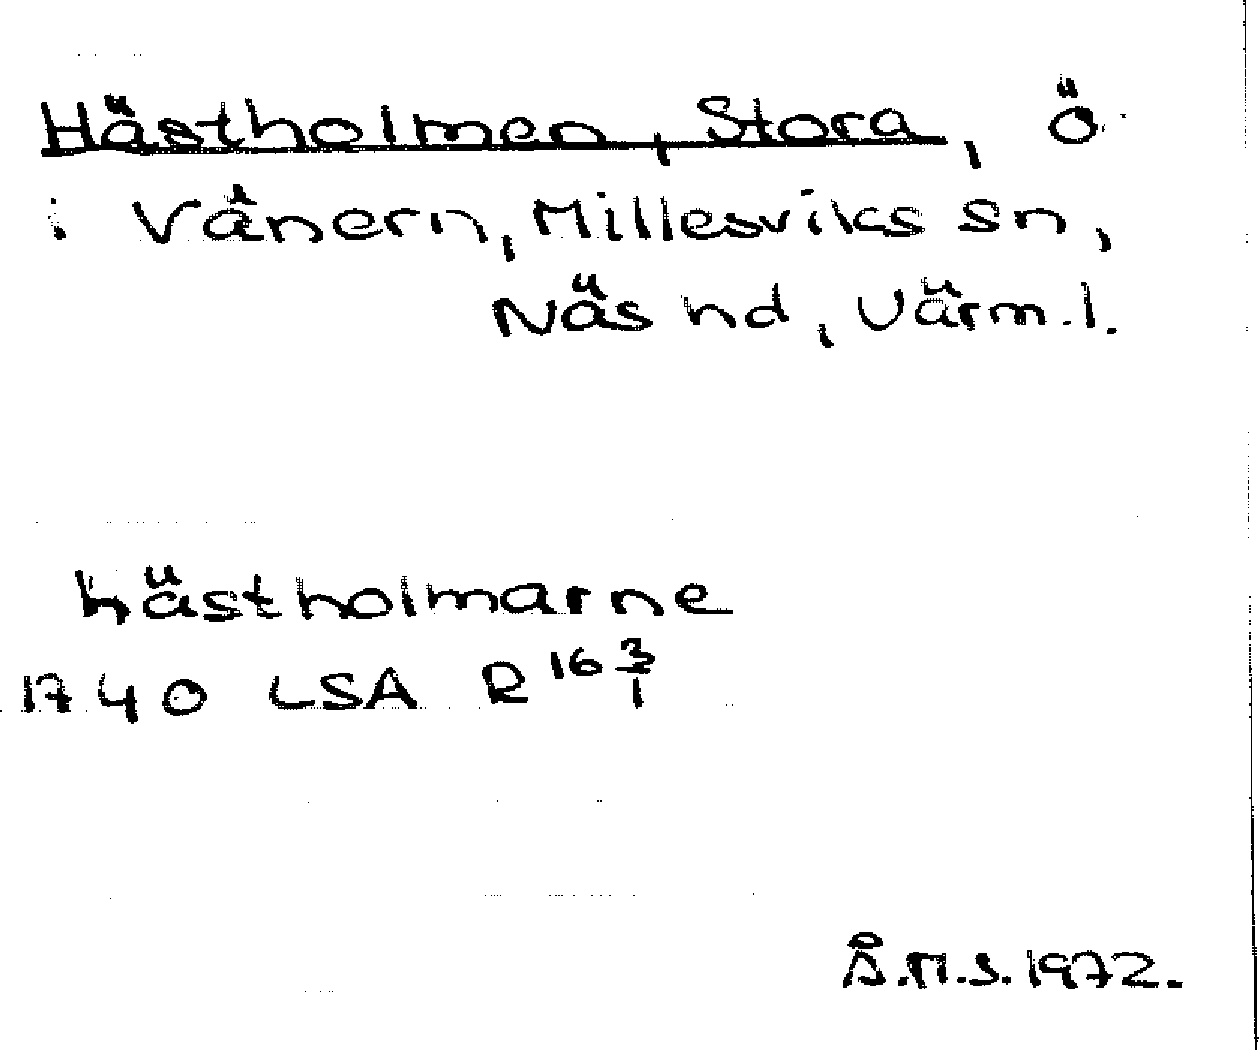 Hästholmen, Stora, ö
i Vänern, Millesviks sn,
Näs hd, Värml.
hästholmarne
1740 LSA R 16 3/1
Å.M.S. 1972.